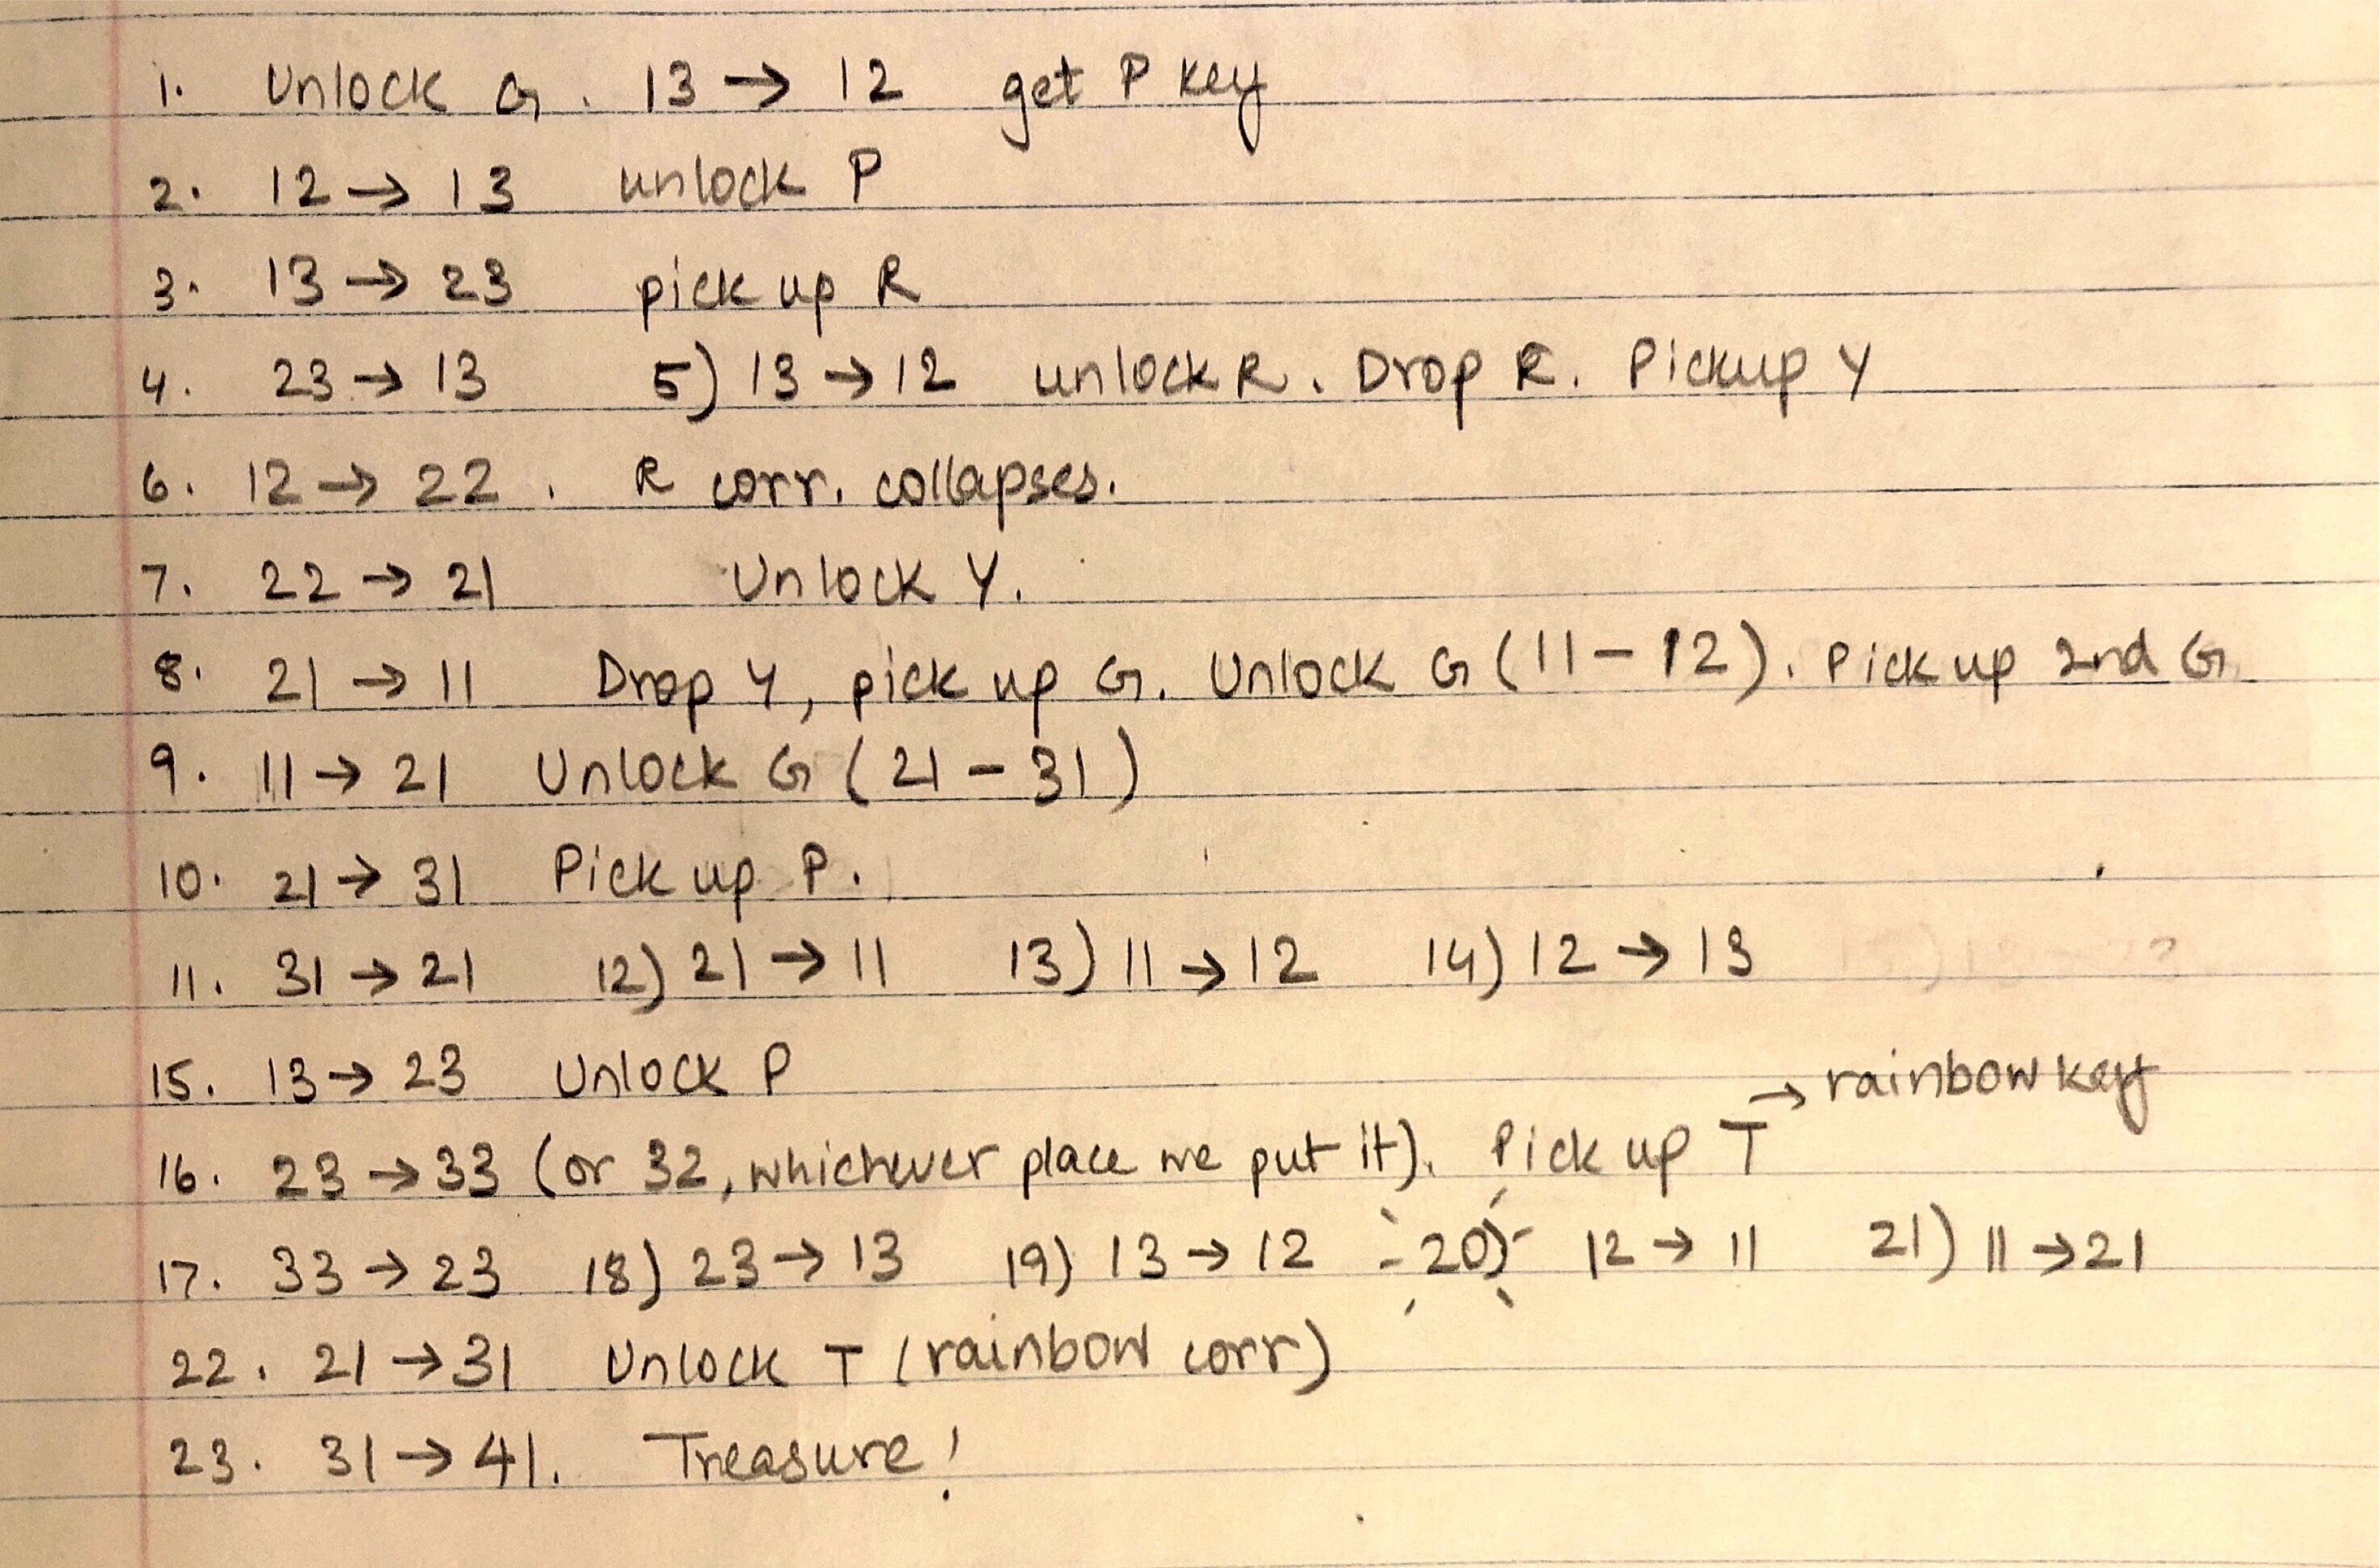 1. Unlock G. 13 → 12 get P key
2. 12 → 13 unlock P
3. 13 → 23 pick up R
4. 23 → 13 5) 13 → 12 unlock R. Drop R. Pickup Y
6. 12 → 22. R corr. collapses.
7. 22 → 21 Unlock Y.
8. 21 → 11 Drop Y, pick up G. Unlock G (11 - 12). Pick up 2nd G.
9. 11 → 21 Unlock G (21 - 31)
10. 21 → 31 Pick up P.
11. 31 → 21 12) 21 → 11 13) 11 → 12 14) 12 → 13
15. 13 → 23 Unlock P
→ rainbow key
16. 23 → 33 (or 32, whichever place we put it). Pick up T
17. 33 → 23 18) 23 → 13 19) 13 → 12 20) 12 → 11 21) 11 → 21
22. 21 → 31 Unlock T (rainbow corr)
23. 31 → 41. Treasure!